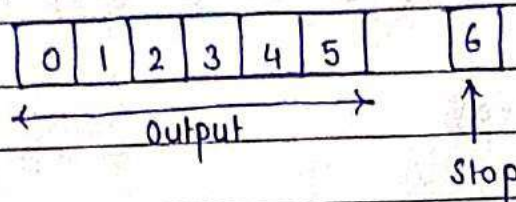 0 1 2 3 4 5 6
Output
Stop